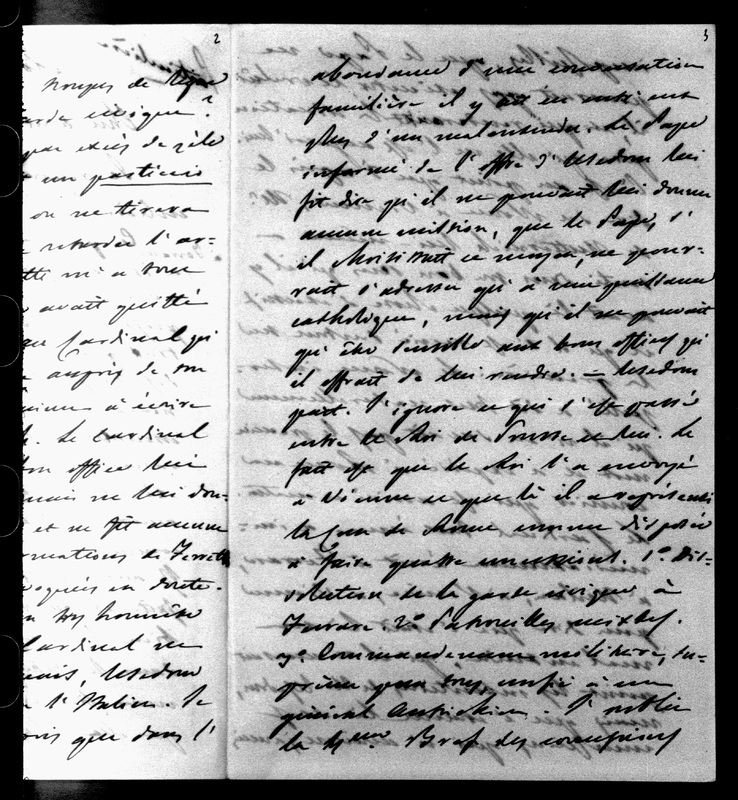 2
troupes de ligne
garde civique?
par excès de zèle
un particulier
on ne tirera
retarder l'ar-
m'a tout
avait quitté
au Cardinal qui
auprès de son
à écrire
. Le Cardinal
bon office lui
mais ne lui don-
et ne fit aucune
de Ferretti
en doute.
très honnête
Cardinal ne
, Usedom
l'Italien. Je
que dans l'
3
abondance d'une conversation
familière il y ait eu entre eux
plus d'un malentendu. Le Pape
informé de l'offre d'Usedom lui
fit dire qu'il ne pouvait lui donner
aucune mission, que le Pape, s'
il choisissait ce moyen, ne pour-
rait s'adresser qu'à une puissance
catholique, mais qu'il ne pouvait
qu'être sensible aux bons offices qu'
il offrait de lui rendre. — Usedom
part. J'ignore ce qui s'est passé
entre le Roi de Prusse et lui. Le
fait est que le Roi l'a envoyé
à Vienne et que là il a représenté
la Cour de Rome comme disposée
à faire quatre concessions. 1º Dis-
solution de la garde civique à
Ferrare. 2º Patrouilles mixtes.
3º Commandement militaire, su-
prême pour tous, confié à un
général Autrichien. J'oublie
la 4eme. Bref des concessions